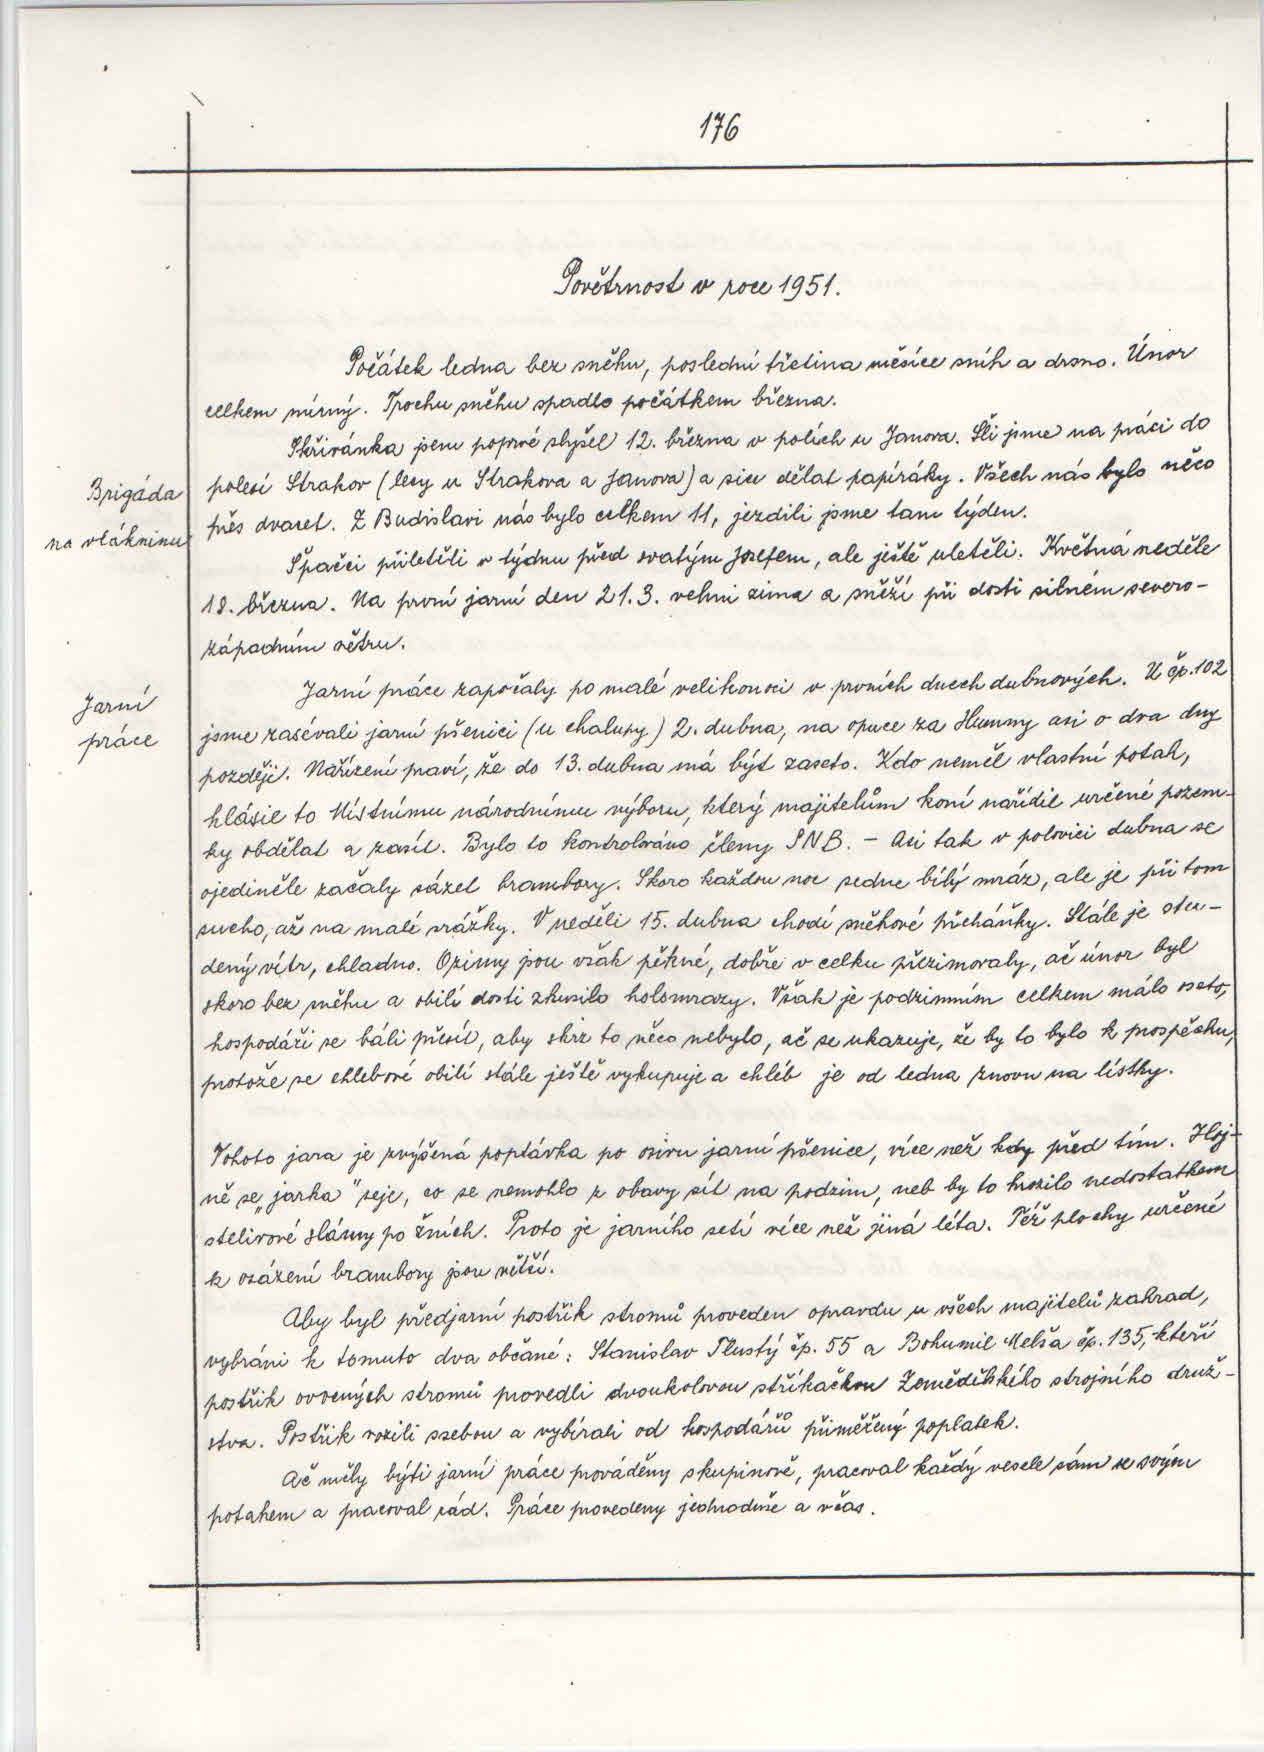 176
Povětrnost v roce 1951.
Počátek ledna bez sněhu, poslední třetina měsíce sníh a drsno. Únor
celkem mírný. Trochu sněhu spadlo počátkem března.
Skřivánka jsem poprvé slyšel 12. března v polích u Janova. Šli jsme na práci do
Brigáda
polesí Strakov (lesy u Strakova a Janova) a sice dělat papíráky. Všech nás bylo něco
přes dvacet. Z Budislavi nás bylo celkem 11, jezdili jsme tam týden.
na vlákninu
Špačci přiletěli v týdnu před svatým Josefem, ale ještě uletěli. Květná neděle
18. března. Na první jarní den 21.3. velmi zima a sněží při dosti silném severo-
západním větru.
Jarní
práce
Jarní práce započaly po malé velikonoci v prvních dnech dubnových. U čp.102
jsme zasévali jarní pšenici (u chalupy) 2. dubna, na opuce za Humny asi o dva dny
později. Nařízení praví, že do 13. dubna má být zaseto. Kdo neměl vlastní potah,
hlásil to Místnímu národnímu výboru, který majitelům koní nařídil určené pozem-
ky obdělat a zasít. Bylo to kontrolováno členy SNB. - Asi tak v polovici dubna se
ojediněle začaly sázet brambory. Skoro každou noc sedne bílý mráz, ale je při tom
sucho, až na malé srážky. V neděli 15. dubna chodí sněhové přeháňky. Stále je stu-
dený vítr, chladno. Ozimy jsou však pěkné, dobře v celku přezimovaly, ač únor byl
skoro bez sněhu a obilí dosti zkusilo holomrazy. Však je podzimním celkem málo oseto,
hospodáři se báli přesít, aby skrz to něco nebylo, ač se ukazuje, že by to bylo k prospěchu,
protože se chlebové obilí stále ještě vykupuje a chléb je od ledna znovu na lístky.
Tohoto jara je zvýšená poptávka po osivu jarní pšenice, více než kdy před tím. Hoj-
ně se „jarka" seje, co se nemohlo z obavy sít na podzim, neb by to hrozilo nedostatkem
stelivové slámy po žních. Proto je jarního setí více než jiná léta. Též plochy určené
k osázení brambory jsou větší.
Aby byl předjarní postřik stromů proveden opravdu u všech majitelů zahrad,
vybráni k tomuto dva občané: Stanislav Tlustý čp. 55 a Bohumil Melša čp. 135, kteří
postřik ovocných stromů provedli dvoukolovou stříkačkou Zemědělského strojního druž-
stva. Postřik vozili ssebou a vybírali od hospodářů přiměřený poplatek.
Ač měly býti jarní práce prováděny skupinově, pracoval každý vesele sám se svým
potahem a pracoval rád. Práce provedeny jednoduše a včas.